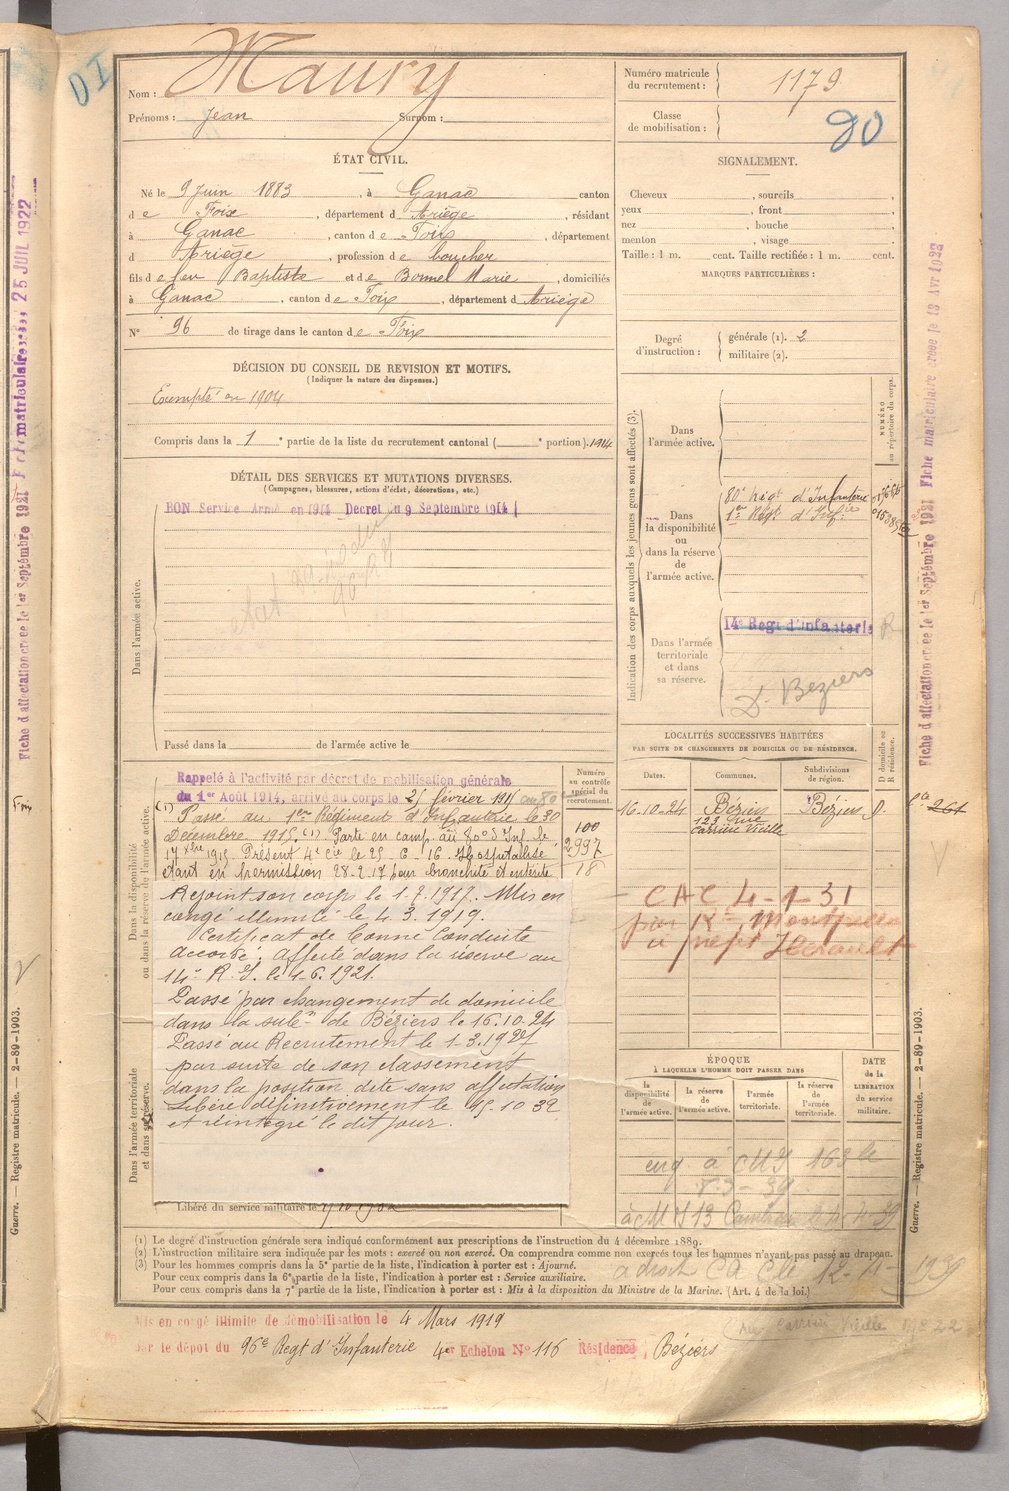 DI
Nom : Maury
Prénoms : Jean Surnom :
Numéro matricule du recrutement : 1179
Classe de mobilisation :
ÉTAT CIVIL.
Né le 9 Juin 1883, à Ganac canton
de Foix, département d Ariège, résidant
à Ganac, canton de Foix, département
d Ariège, profession de boucher
fils de feu Baptiste et de Bonnel Marie, domiciliés
à Ganac, canton de Foix, département d Ariège
N° 96 de tirage dans le canton de Foix
SIGNALEMENT.
Cheveux , sourcils ,
yeux , front ,
nez , bouche ,
menton , visage .
Taille : 1 m. cent. Taille rectifiée : 1 m. cent.
MARQUES PARTICULIÈRES :
Degré d'instruction : générale (1). 2
militaire (2).
DÉCISION DU CONSEIL DE REVISION ET MOTIFS.
(Indiquer la nature des dispenses.)
Exempté en 1904
Compris dans la 1e partie de la liste du recrutement cantonal ( e portion). 1914
DÉTAIL DES SERVICES ET MUTATIONS DIVERSES.
(Campagnes, blessures, actions d'éclat, décorations, etc.)
BON Service Armé en 1914 Decret du 9 Septembre 1914
Dans l'armée active.
Passé dans la de l'armée active le
Indication des corps auxquels les jeunes gens sont affectés (3).
NUMÉRO au répertoire du corps.
Dans l'armée active.
Dans la disponibilité ou dans la réserve de l'armée active.
80e Régt d'Infanterie
1er Régt d'Infie
Dans l'armée territoriale et dans sa réserve.
14e Regt d'infanterie
Dt Beziers
LOCALITÉS SUCCESSIVES HABITÉES
PAR SUITE DE CHANGEMENTS DE DOMICILE OU DE RÉSIDENCE.
Dates. Communes. Subdivisions de région. D domicile ou R résidence.
16.10.24 Béziers Béziers D
123 Rue
Carrière Vieille
CAC 4-1-31
par Rt Montpellier
à préf Hérault
Dans la disponibilité ou dans la réserve de l'armée active.
Numéro au contrôle spécial du recrutement.
100
2997
18
Rappelé à l'activité par décret de mobilisation générale
du 1er Août 1914, arrivé au corps le 25 février 1915
(1) Passé au 1er Régiment d'Infanterie le 30
Décembre 1915. (1) Parti en camp. au 80e d'Inf. le
17 Xbre 1915. Présent 4e Cie le 25-6-16. Hospitalisé
étant en permission 28-2-17 pour bronchite et entérite
Rejoint son corps le 1.7.1917. Mis en
congé illimité le 4.3.1919.
Certificat de bonne conduite
accordé. Affecté dans la réserve au
14e R.I. le 1-6.1921.
Passé par changement de domicile
dans la subon de Béziers le 16.10.24
Passé au Recrutement le 1.3.1927
par suite de son classement
dans la position dite sans affectation
Libéré définitivement le 15.10 32
et réintégré le dit jour.
Dans l'armée territoriale et dans sa réserve.
Libéré du service militaire le
ÉPOQUE
À LAQUELLE L'HOMME DOIT PASSER DANS
la disponibilité de l'armée active. la réserve de l'armée active. l'armée territoriale. la réserve de l'armée territoriale.
DATE de la LIBÉRATION du service militaire.
(1) Le degré d'instruction générale sera indiqué conformément aux prescriptions de l'instruction du 4 décembre 1889.
(2) L'instruction militaire sera indiquée par les mots : exercé ou non exercé. On comprendra comme non exercés tous les hommes n'ayant pas passé au drapeau.
(3) Pour les hommes compris dans la 5e partie de la liste, l'indication à porter est : Ajourné.
Pour ceux compris dans la 6e partie de la liste, l'indication à porter est : Service auxiliaire.
Pour ceux compris dans la 7e partie de la liste, l'indication à porter est : Mis à la disposition du Ministre de la Marine. (Art. 4 de la loi.)
Mis en congé illimité de démobilisation le 4 Mars 1919
par le dépôt du 96e Regt d'Infanterie 4e Echelon N° 116 Résidence Béziers
Guerre. — Registre matricule. — 2-89-1903.
Guerre. — Registre matricule. — 2-89-1903.
Fiche d'affectation créée le 1er Septembre 1921 Fiche matriculaire créée le 13 Avr 1922
Fiche d'affectation créée le 1er Septembre 1921
25 JUIL 1922